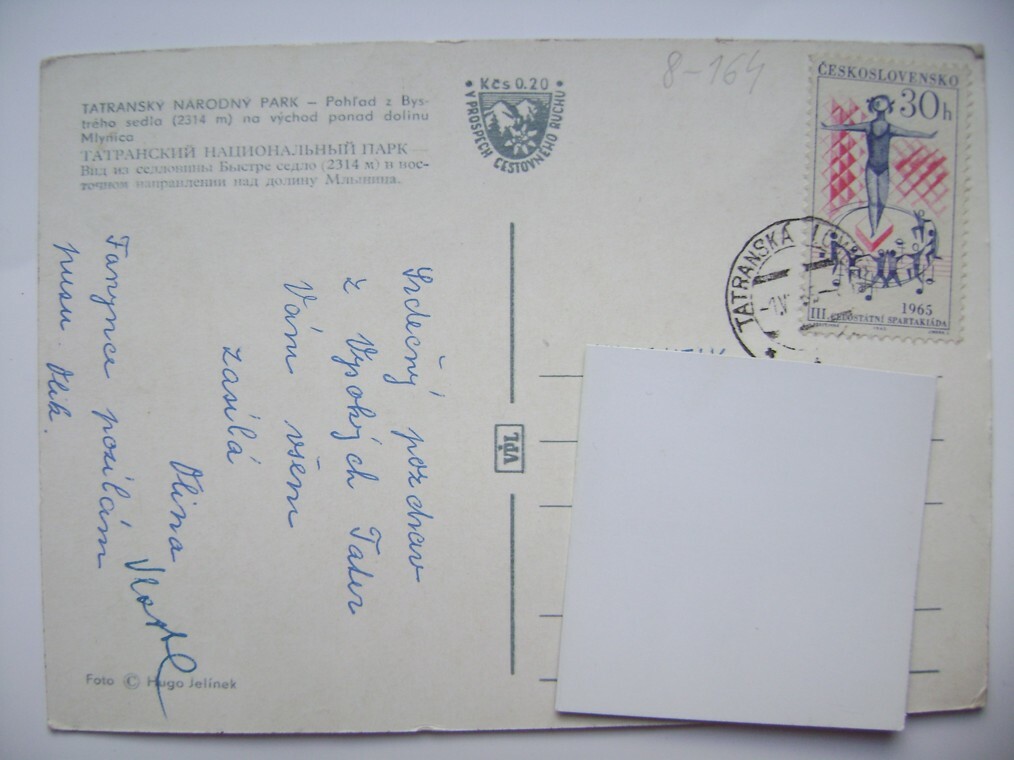 8-164
TATRANSKÝ NÁRODNÝ PARK – Pohľad z Bys-
trého sedla (2314 m) na východ ponad dolinu
Mlynica
ТАТРАНСКИЙ НАЦИОНАЛЬНЫЙ ПАРК —
Вид из седловины Быстре седло (2314 м) в вос-
точном направлении над долину Млыница.
• Kčs 0.20 •
V PROSPECH CESTOVNÉHO RUCHU
ČESKOSLOVENSKO
30h
1965
III. CELOSTÁTNÍ SPARTAKIÁDA
TATRANSKÁ
VPL
Srdečný pozdrav
z Vysokých Tater
Vám všem
zasílá
Olina
Fanynce posílám
pusu Olik.
Foto © Hugo Jelínek